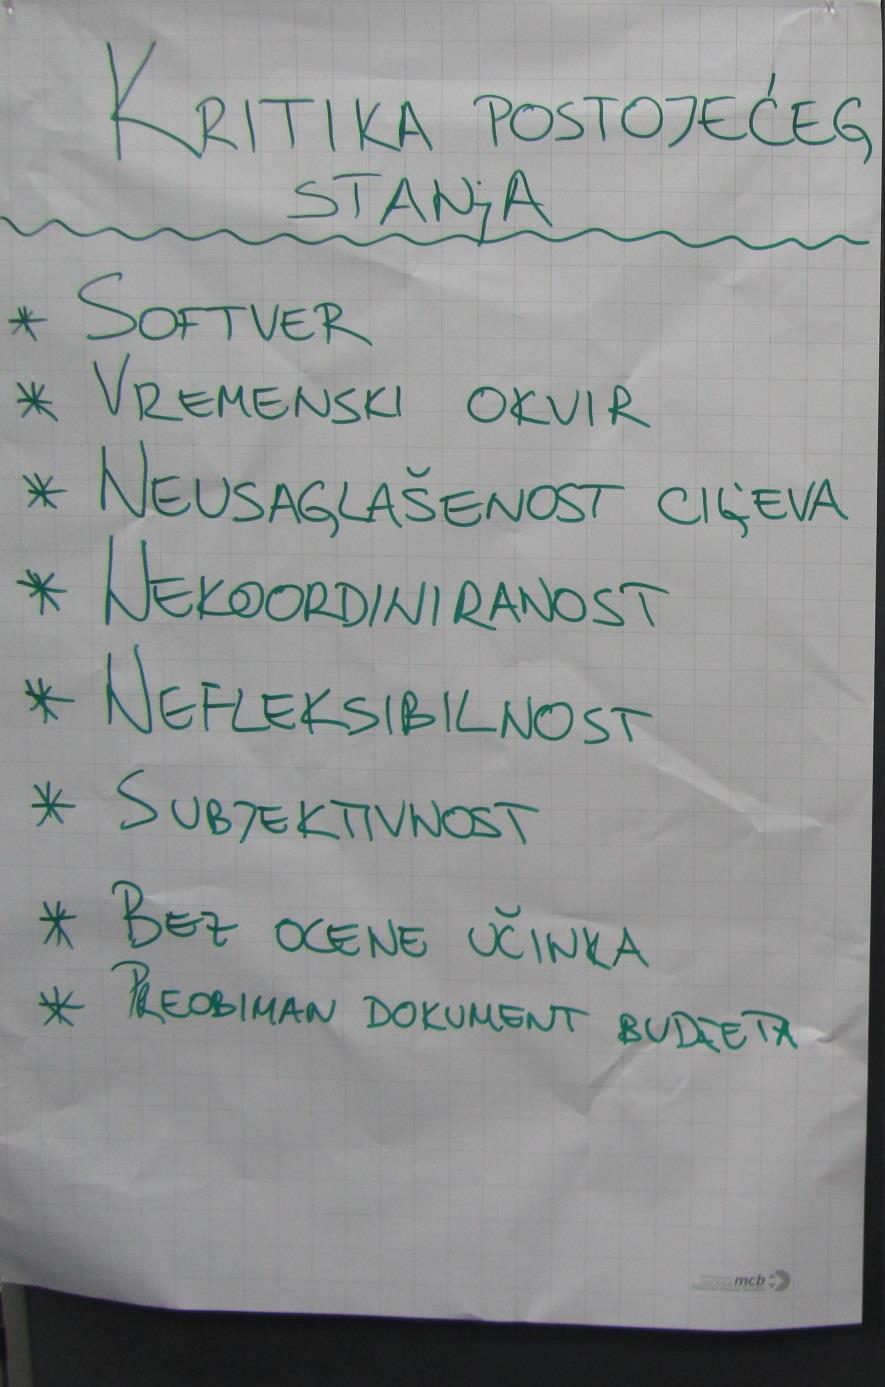 KRITIKA POSTOJEĆEG
STANJA
* SOFTVER
* VREMENSKI OKVIR
* NEUSAGLAŠENOST CILJEVA
* NEKOORDINIRANOST
* NEFLEKSIBILNOST
* SUBJEKTIVNOST
* BEZ OCENE UČINKA
* PREOBIMAN DOKUMENT BUDŽETA
mcb